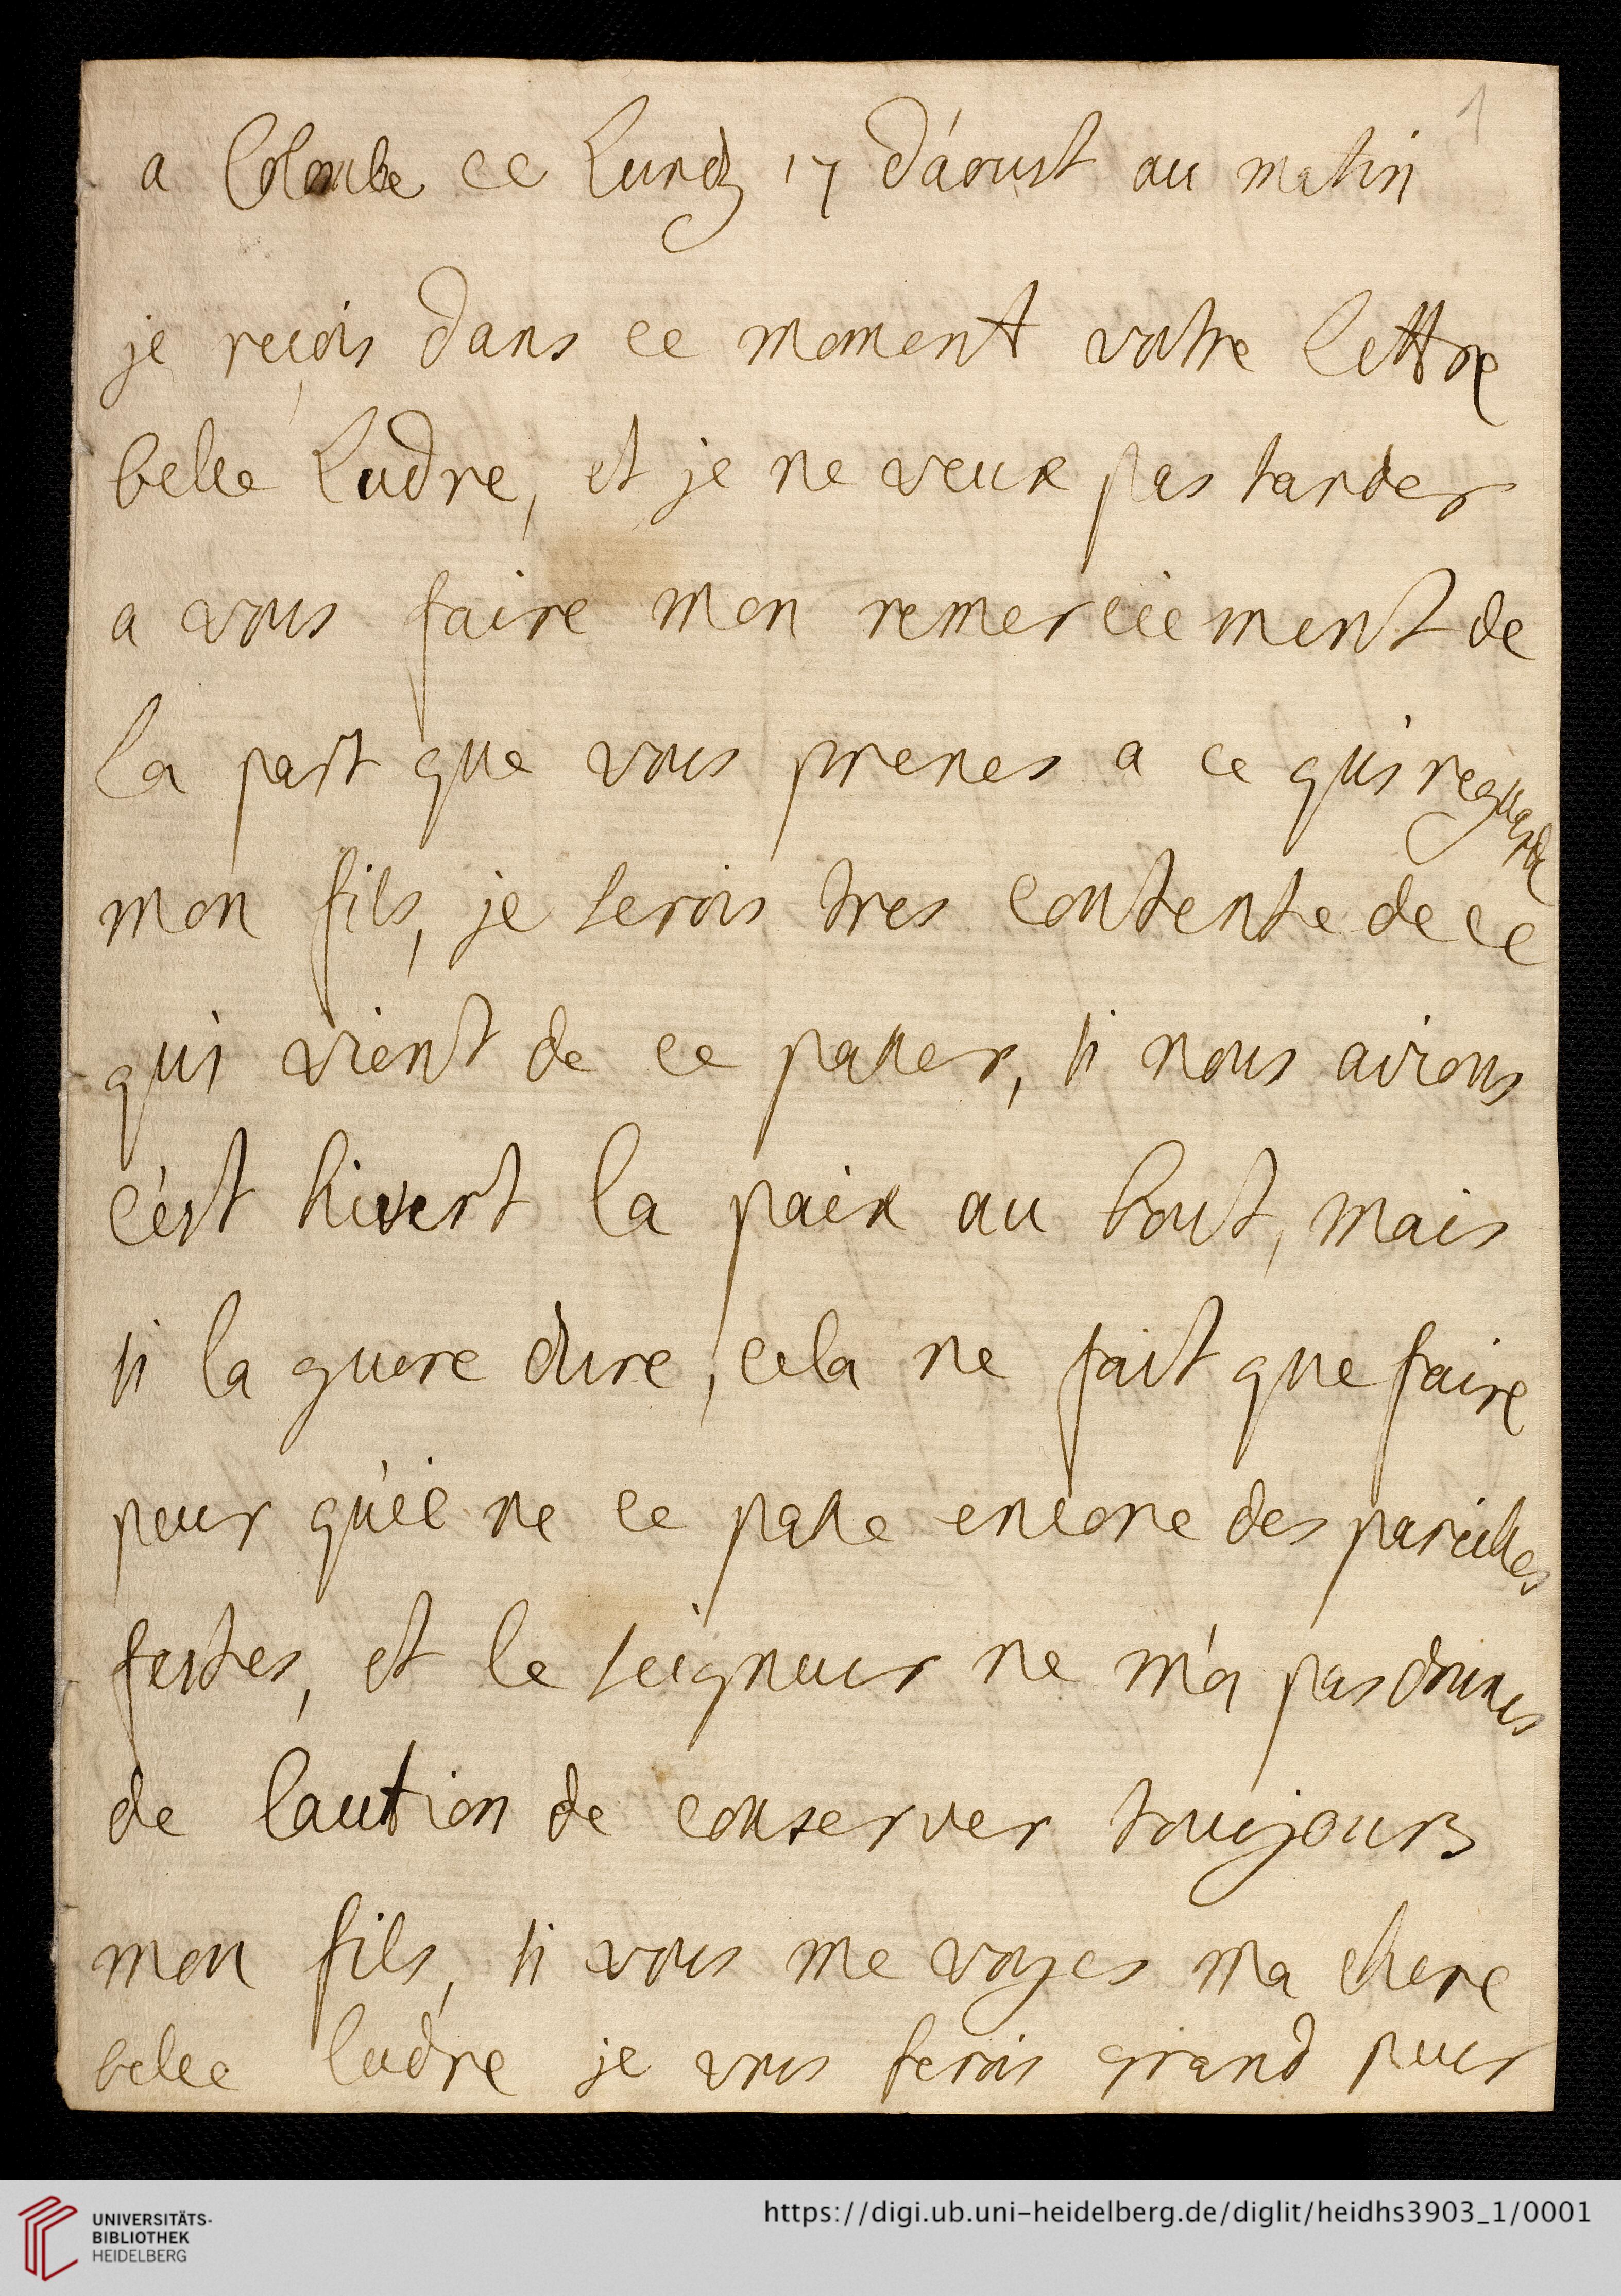 1
a Colombe ce Lundy 17 d'aoust au matin
je reçois dans ce moment vostre lettre
belle Ludre, et je ne veux pas tarder
a vous faire mon remerciement de
la part que vous prenes a ce qui reguarde
mon fils, je serois tres contente de ce
qui vient de ce passer, si nous avions
c'est hivert la paix au bout, mais
si la guere dure, cela ne fait que faire
peur qu'il ne ce passe encore des pareilles
festes, et le seigneur ne m'a pas donnes
de caution de conserver toujours
mon fils, si vous me voyes ma chere
belle ludre je vous ferois grand peur
UNIVERSITÄTS-
BIBLIOTHEK
HEIDELBERG
https://digi.ub.uni-heidelberg.de/diglit/heidhs3903_1/0001